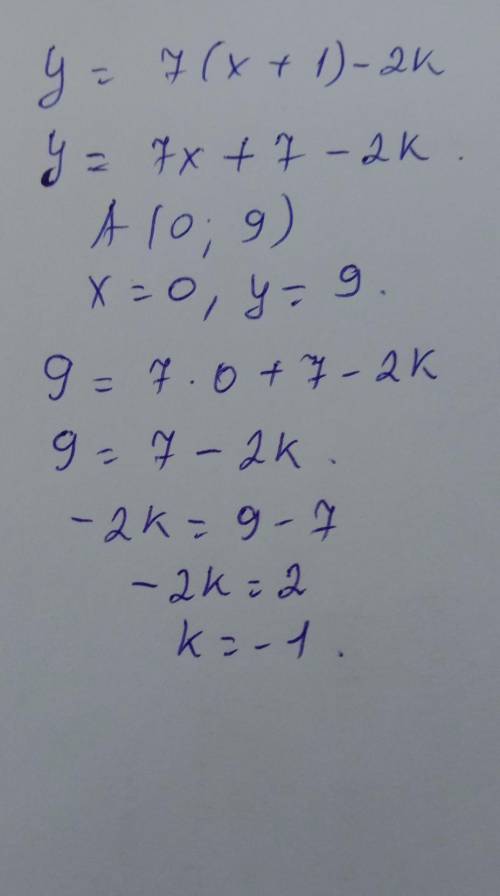 y = 7(x + 1) - 2k
y = 7x + 7 - 2k.
A(0; 9)
x = 0, y = 9.
9 = 7 · 0 + 7 - 2k
9 = 7 - 2k.
-2k = 9 - 7
-2k = 2
k = -1.